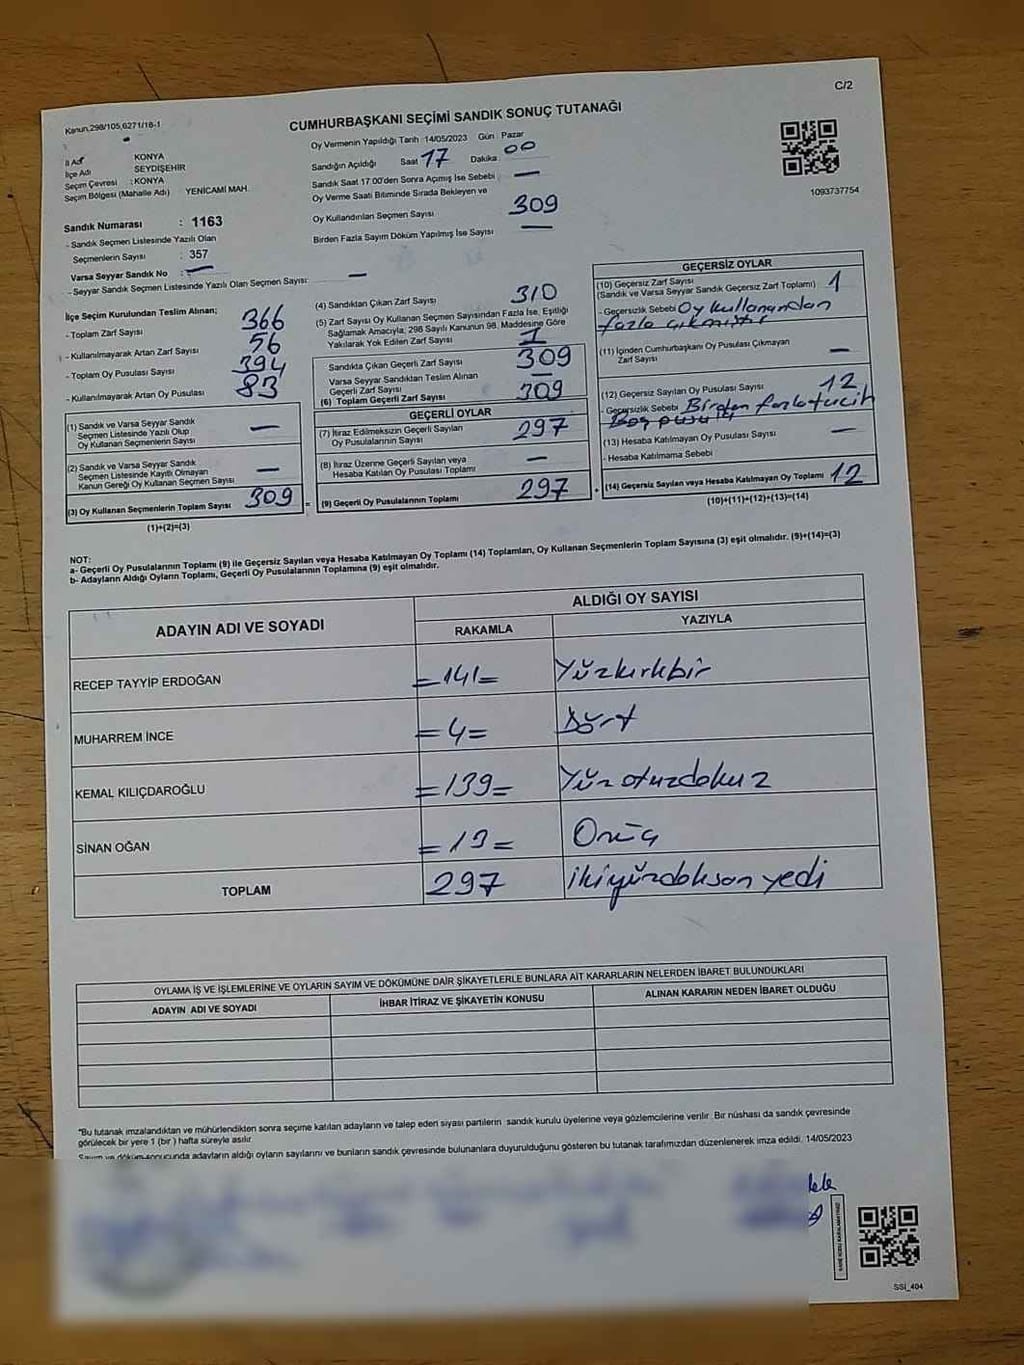 C/2
Kanun,298/105,6271/18-1
CUMHURBAŞKANI SEÇİMİ SANDIK SONUÇ TUTANAĞI
İl Adı KONYA
İlçe Adı SEYDİŞEHİR
Seçim Çevresi : KONYA
Seçim Bölgesi (Mahalle Adı) YENİCAMİ MAH.
Sandık Numarası : 1163
- Sandık Seçmen Listesinde Yazılı Olan
Seçmenlerin Sayısı : 357
Varsa Seyyar Sandık No : —
- Seyyar Sandık Seçmen Listesinde Yazılı Olan Seçmen Sayısı: —
Oy Vermenin Yapıldığı Tarih 14/05/2023 Gün Pazar
Sandığın Açıldığı Saat 17 Dakika: 00
Sandık Saat 17.00'den Sonra Açmış İse Sebebi : —
Oy Verme Saati Bitiminde Sırada Bekleyen ve
Oy Kullandırılan Seçmen Sayısı 309
Birden Fazla Sayım Döküm Yapılmış İse Sayısı —
1093737754
İlçe Seçim Kurulundan Teslim Alınan;
- Toplam Zarf Sayısı 366
- Kullanılmayarak Artan Zarf Sayısı 56
- Toplam Oy Pusulası Sayısı 394
- Kullanılmayarak Artan Oy Pusulası 83
(1) Sandık ve Varsa Seyyar Sandık
Seçmen Listesinde Yazılı Olup
Oy Kullanan Seçmenlerin Sayısı —
(2) Sandık ve Varsa Seyyar Sandık
Seçmen Listesinde Kayıtlı Olmayan
Kanun Gereği Oy Kullanan Seçmen Sayısı —
(3) Oy Kullanan Seçmenlerin Toplam Sayısı 309 =
(1)+(2)=(3)
(4) Sandıktan Çıkan Zarf Sayısı 310
(5) Zarf Sayısı Oy Kullanan Seçmen Sayısından Fazla İse, Eşitliği
Sağlamak Amacıyla, 298 Sayılı Kanunun 98. Maddesine Göre
Yakılarak Yok Edilen Zarf Sayısı 1
Sandıkta Çıkan Geçerli Zarf Sayısı 309
Varsa Seyyar Sandıktan Teslim Alınan
Geçerli Zarf Sayısı —
(6) Toplam Geçerli Zarf Sayısı 309
GEÇERLİ OYLAR
(7) İtiraz Edilmeksizin Geçerli Sayılan
Oy Pusulalarının Sayısı 297
(8) İtiraz Üzerine Geçerli Sayılan veya
Hesaba Katılan Oy Pusulası Toplamı —
(9) Geçerli Oy Pusulalarının Toplamı 297 +
GEÇERSİZ OYLAR
(10) Geçersiz Zarf Sayısı
(Sandık ve Varsa Seyyar Sandık Geçersiz Zarf Toplamı) 1
- Geçersizlik Sebebi Oy kullanandan
fazla çıkmıştır
(11) İçinden Cumhurbaşkanı Oy Pusulası Çıkmayan
Zarf Sayısı —
(12) Geçersiz Sayılan Oy Pusulası Sayısı 12
- Geçersizlik Sebebi Birden fazla tercih
Boş pusula
(13) Hesaba Katılmayan Oy Pusulası Sayısı —
- Hesaba Katılmama Sebebi
(14) Geçersiz Sayılan veya Hesaba Katılmayan Oy Toplamı 12
(10)+(11)+(12)+(13)=(14)
NOT:
a- Geçerli Oy Pusulalarının Toplamı (9) ile Geçersiz Sayılan veya Hesaba Katılmayan Oy Toplamı (14) Toplamları, Oy Kullanan Seçmenlerin Toplam Sayısına (3) eşit olmalıdır. (9)+(14)=(3)
b- Adayların Aldığı Oyların Toplamı, Geçerli Oy Pusulalarının Toplamına (9) eşit olmalıdır.
ADAYIN ADI VE SOYADI
ALDIĞI OY SAYISI
RAKAMLA YAZIYLA
RECEP TAYYİP ERDOĞAN =141= Yüzkırkbir
MUHARREM İNCE =4= Dört
KEMAL KILIÇDAROĞLU =139= Yüz otuzdokuz
SİNAN OĞAN =13= Onüç
TOPLAM 297 ikiyüzdoksan yedi
OYLAMA İŞ VE İŞLEMLERİNE VE OYLARIN SAYIM VE DÖKÜMÜNE DAİR ŞİKAYETLERLE BUNLARA AİT KARARLARIN NELERDEN İBARET BULUNDUKLARI
ADAYIN ADI VE SOYADI İHBAR İTİRAZ VE ŞİKAYETİN KONUSU ALINAN KARARIN NEDEN İBARET OLDUĞU
*Bu tutanak imzalandıktan ve mühürlendikten sonra seçime katılan adayların ve talep eden siyasi partilerin sandık kurulu üyelerine veya gözlemcilerine verilir. Bir nüshası da sandık çevresinde
görülecek bir yere 1 (bir ) hafta süreyle asılır.
Sayım ve döküm sonucunda adayların aldığı oyların sayılarını ve bunların sandık çevresinde bulunanlara duyurulduğunu gösteren bu tutanak tarafımızdan düzenlenerek imza edildi. 14/05/2023
SSİ_404